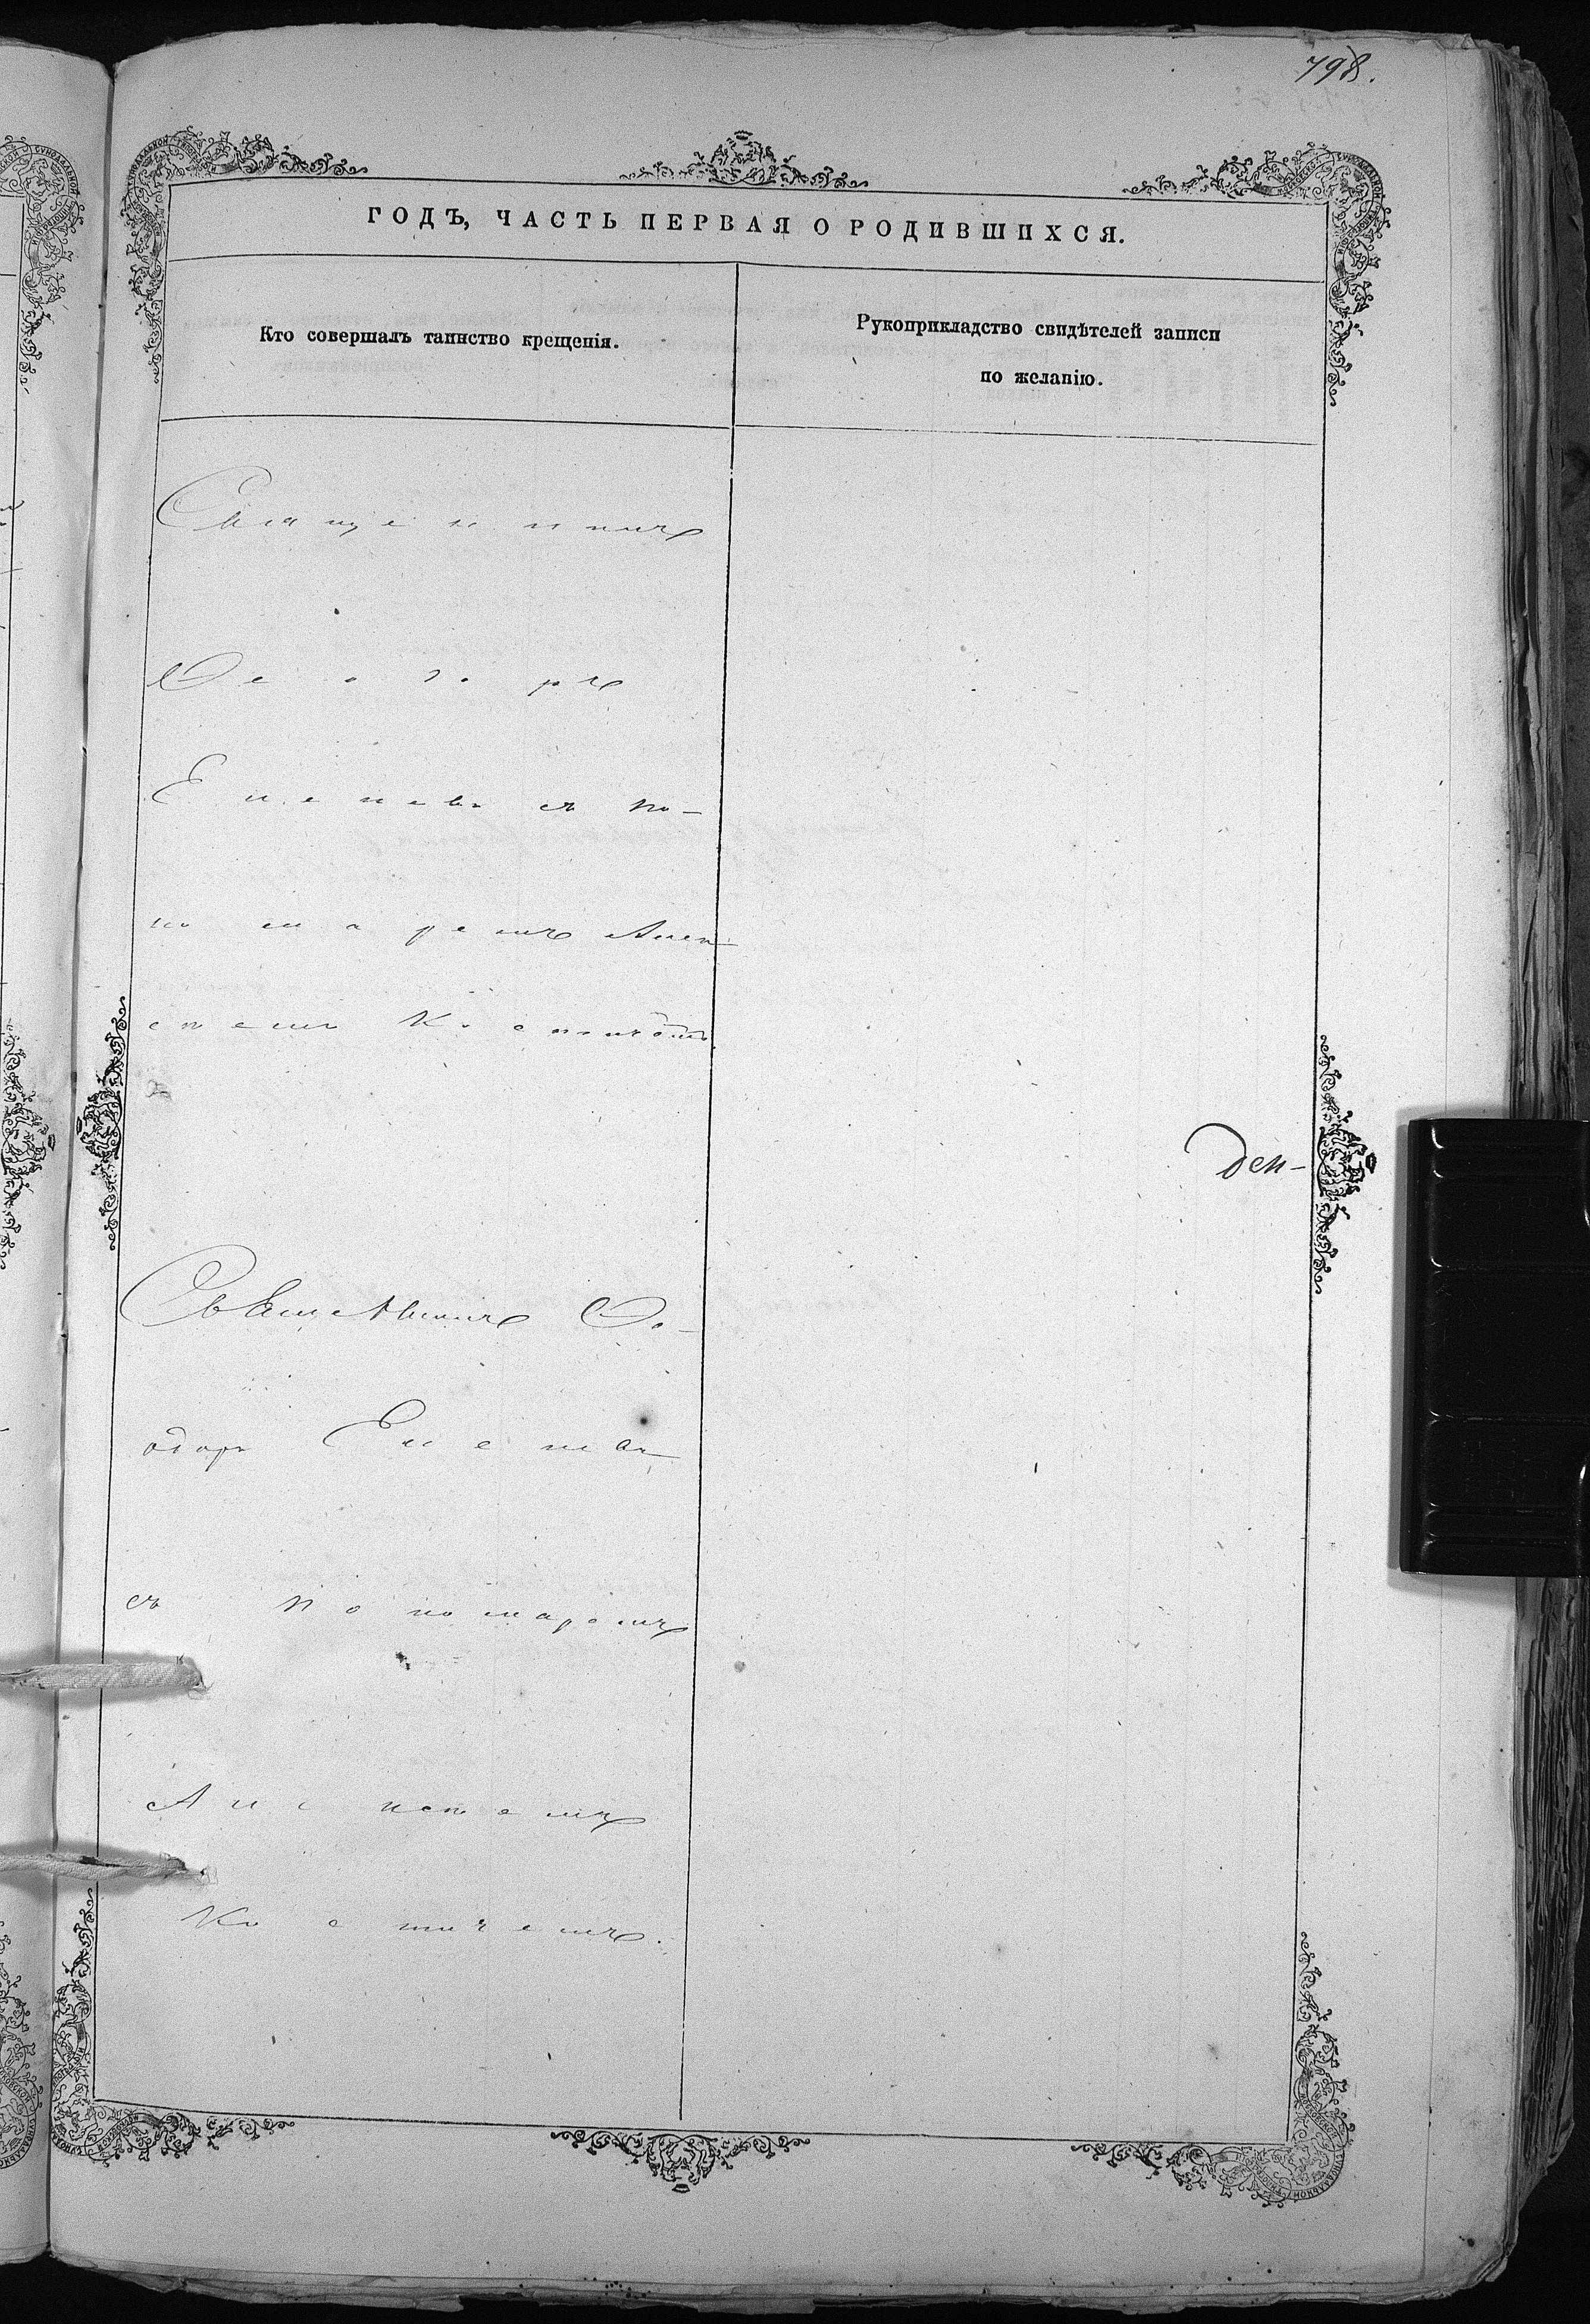 798.
ГОДЪ, ЧАСТЬ ПЕРВАЯ О РОДИВШИХСЯ.
Кто совершалъ таинство крещенія.
Рукоприкладство свидѣтелей записи
по желанію.
Священникъ
Ѳеодоръ
Еленевъ съ по-
номаремъ Алек-
сѣемъ
ден-
Священникъ Ѳе-
одоръ Еленевъ
съ пономаремъ